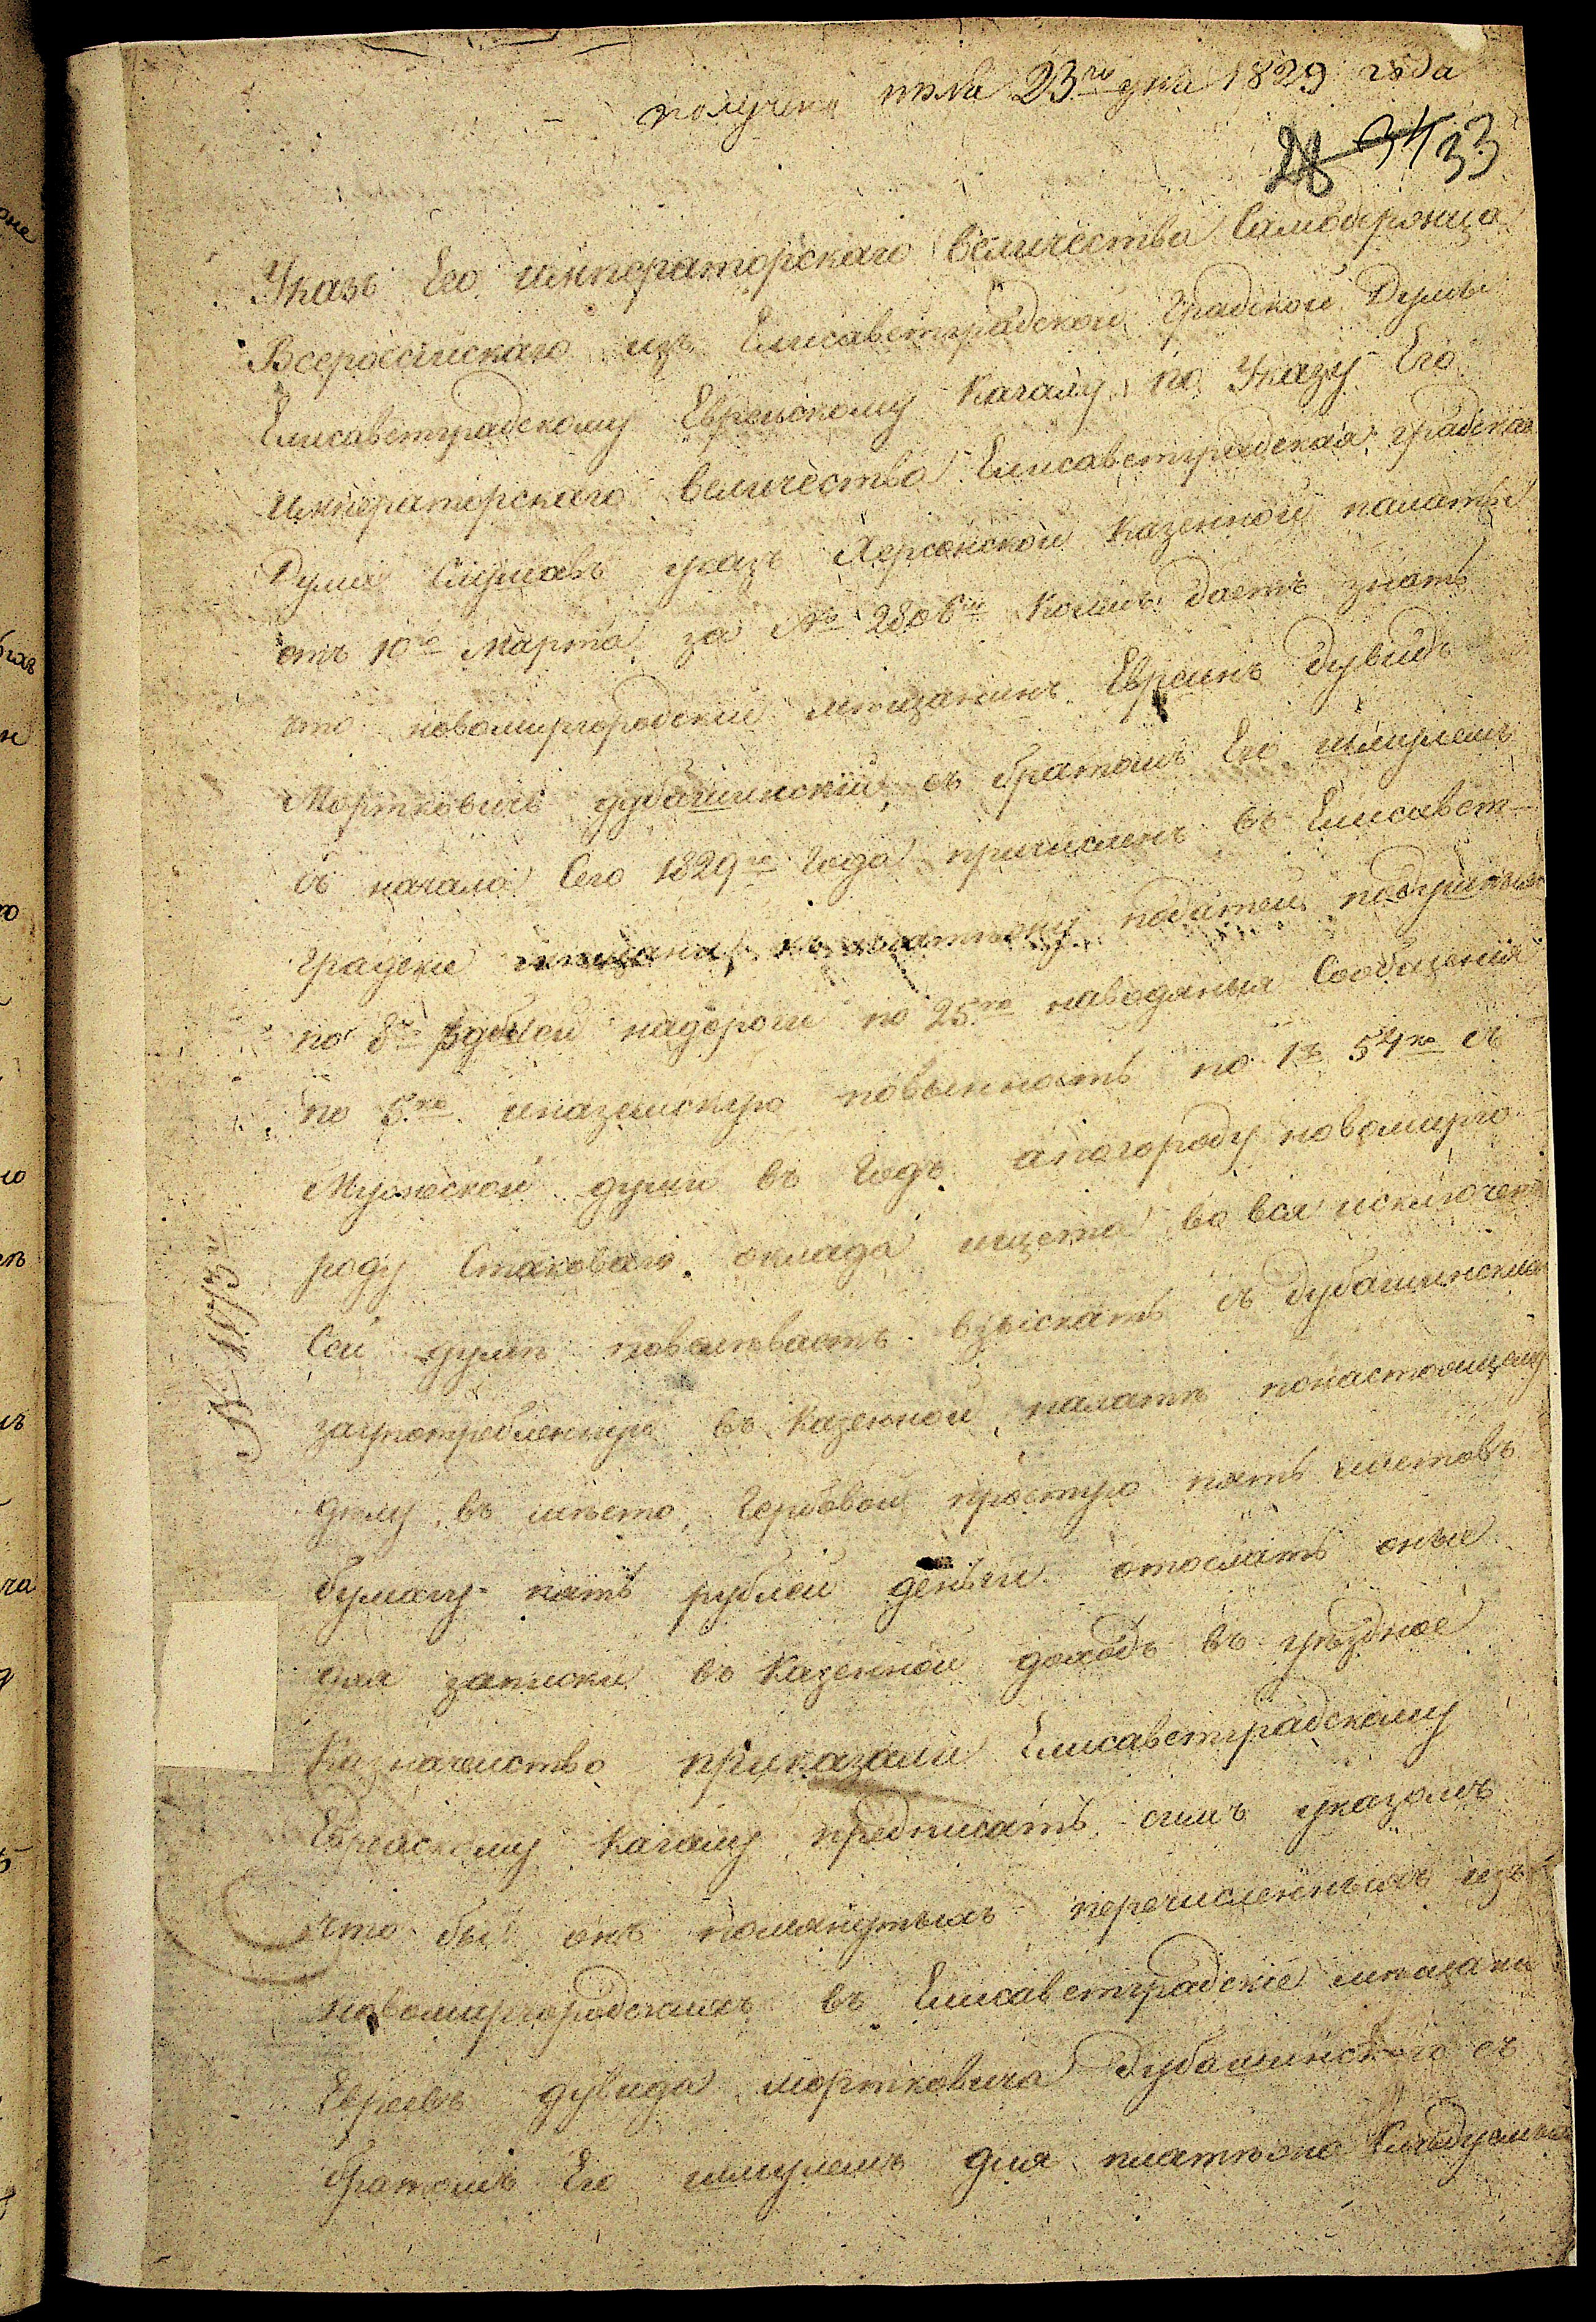 получено июля 23го дня 1829 года
28 34 33
Указъ Его императорскаго величества Самодержца
Всероссійскаго изъ Елисаветградской Градской Думы
Елисаветградскому Еврейскому Кагалу, по Указу Его
императорскаго величества Елисаветградская градская
Дума Слушавъ указъ Херсонской Казенной палаты
отъ 10го марта за № 2806м Коимъ даетъ знать
что новомиргородский мещанинъ Евреинъ Дувидъ
Мортковичъ дубашинский, съ братомъ Его шмулемъ
съ начала Сего 1829го Года причисленъ въ Елисавет-
градски мещани, къ платежу податей подушныхъ
по 8м рублей надороги по 25ко наводяныя Сообщения
по 5ко иназемскую повынность по 1р 54ко съ
Мужеской души въ Годъ апогороду новомирго-
роду Стаковаго оклада ищета вовся исключенъ
Сей думе повелеваетъ взыскать съ дубашинскихъ
заупотребленную въ Казенной палате понастоящему
делу въ место Гербовой простую пять листовъ
бумагу пять рублей деньги отослать оные
для записки въ Казенной доходъ въ уездное
Казначейство приказали Елисаветградскому
Еврейскому Кагалу предписать симъ указомъ
что бы онъ помянутыхъ перечисленныхъ изъ
новомиргородскихъ въ Елисаветградские мещани
Евреевъ дувида мортковича дубашинского съ
братомъ Его шмулемъ для платежа